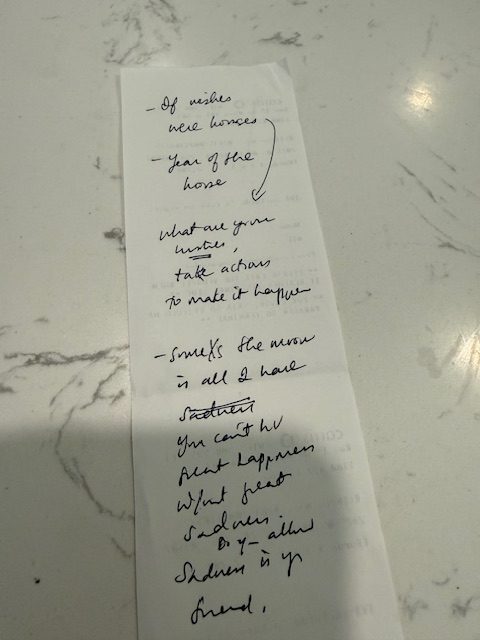 - If wishes
were horses
- Year of the
horse
what are your
wishes,
take actions
to make it happen
- some X's the moon
is all I have
Sadness
You can't hv
great happiness
w/out great
Sadness.
Sadness is yr
friend.